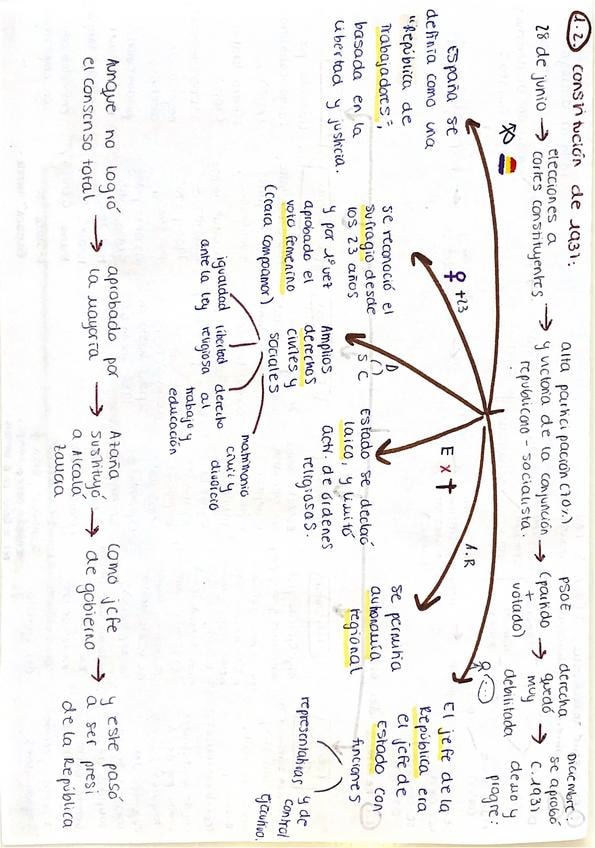 1.2. Constitución de 1931:
28 de junio → elecciones a cortes constituyentes → alta participación (70%) y victoria de la conjunción republicano-socialista. → PSOE (partido + votado) → derecha quedó muy debilitada → Diciembre: se aprobó C.1931 demo y progre:
España se
definía como una
"República de
trabajadores",
basada en la
libertad y justicia.
♀ +23
se reconoció el
sufragio desde
los 23 años
y por 1º vez
aprobado el
voto femenino
(Clara Campoamor)
D
S C
Amplios
derechos
civiles y
sociales
igualdad
ante la ley
libertad
religiosa
derecho
al
trabajo y
educación
matrimonio
civil y
divorcio
E x †
Estado se declaró
laico, y limitó
act. de órdenes
religiosas.
A.R
se permitía
autonomía
regional
El jefe de la
República era
el jefe de
estado con
funciones
representativas y de
control
ejecutivo.
Aunque no logró
el consenso total → aprobado por
la mayoría → Azaña
sustituyó
a Alcalá
Zamora → como jefe
de gobierno → y este pasó
a ser presi
de la República